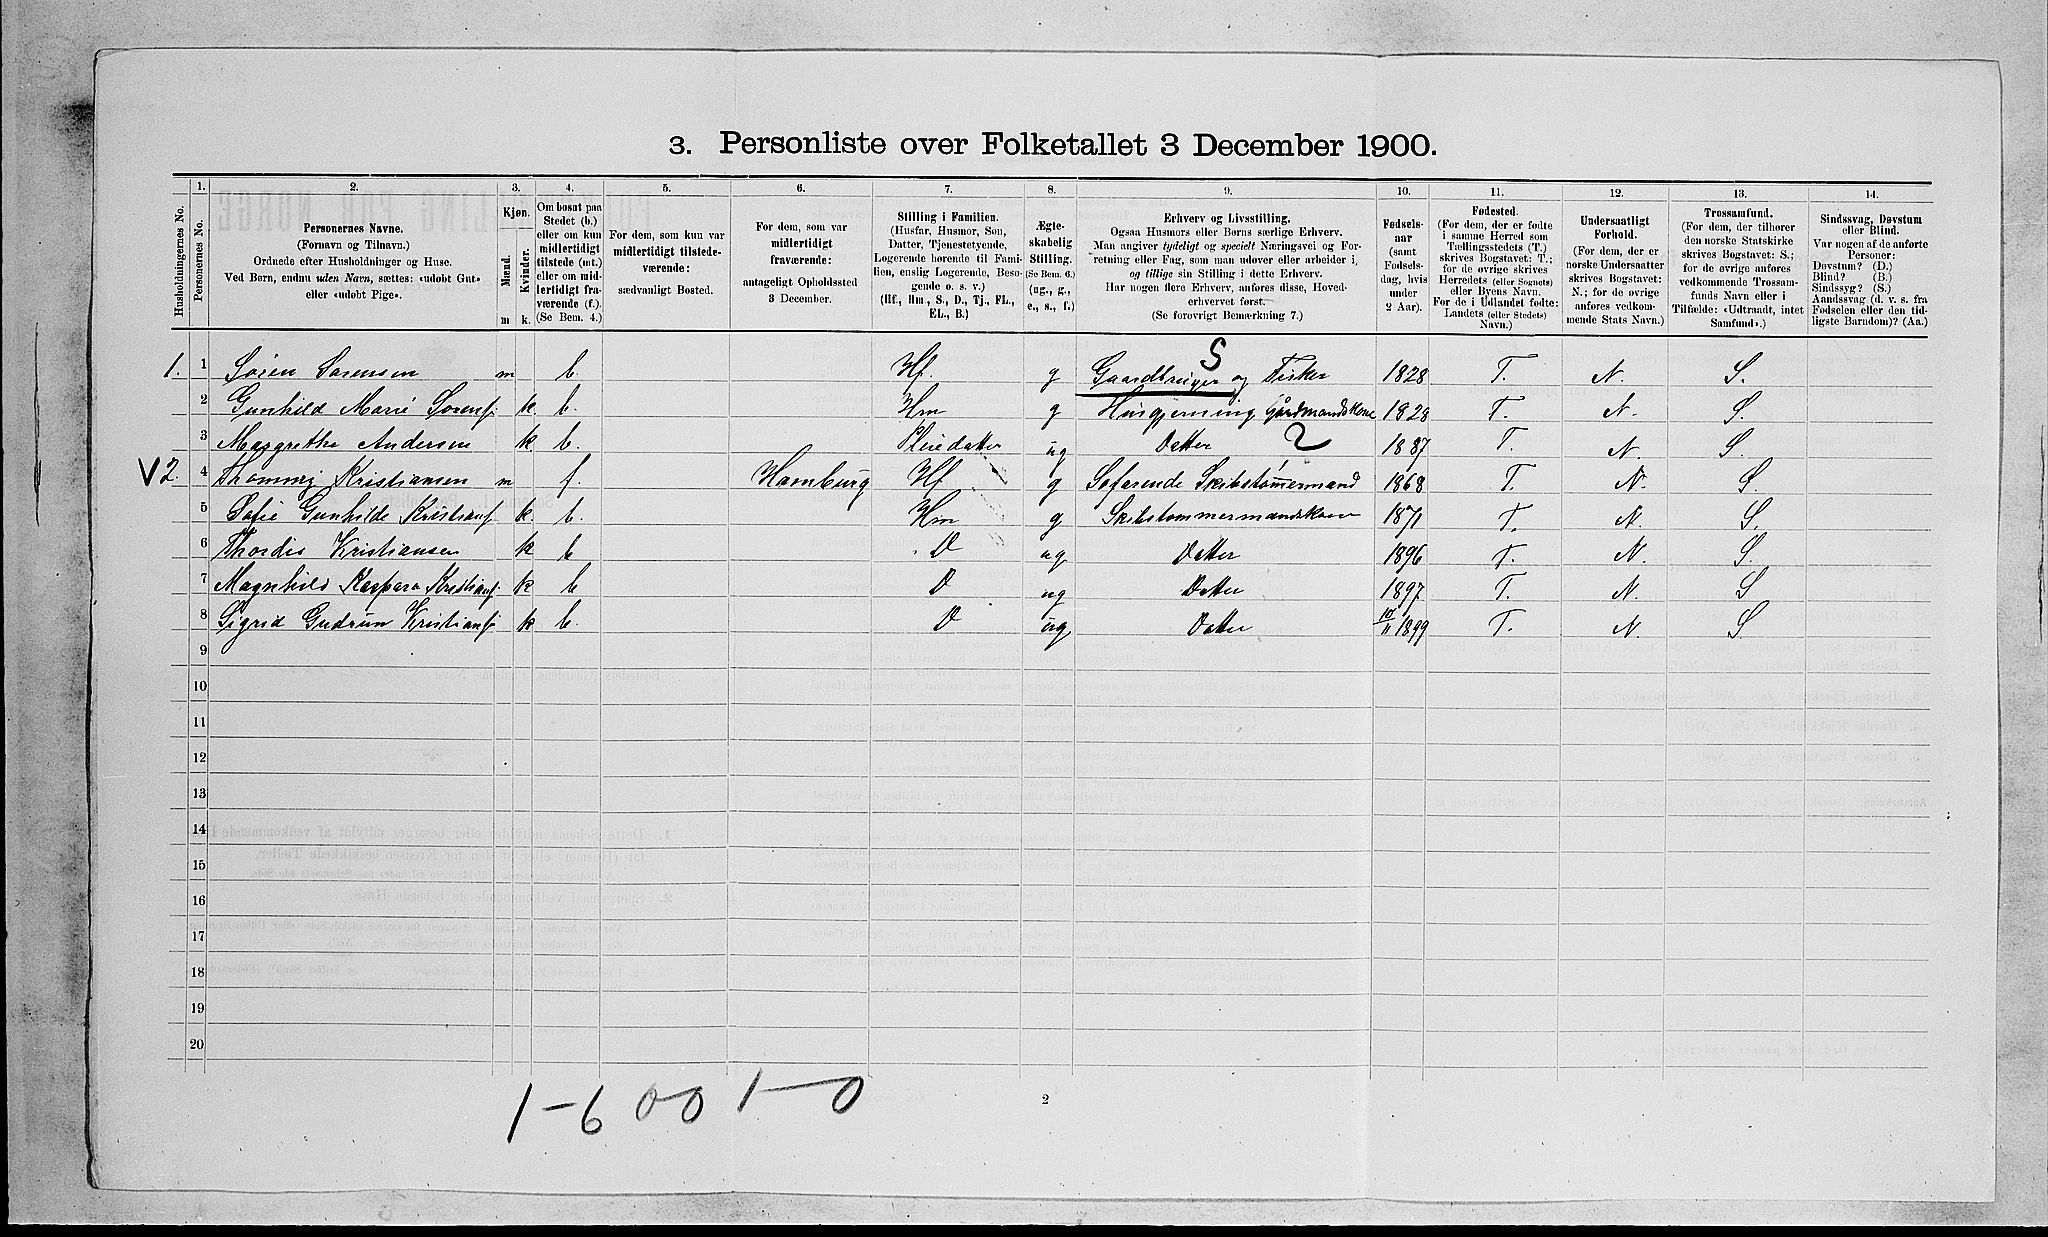 3. Personliste over Folketallet 3 December 1900.
Husholdningernes No.
1.
Personernes No.
2.
Personernes Navne.
(Fornavn og Tilnavn.)
Ordnede efter Husholdninger og Huse.
Ved Børn, endnu uden Navn, sættes: «udøbt Gut»
eller «udøbt Pige».
3.
Kjøn.
Mænd.
Kvinder.
m k.
4.
Om bosat paa
Stedet (b.)
eller om kun
midlertidigt
tilstede (mt.)
eller om mid-
lertidigt fra-
værende (f.).
(Se Bem. 4.)
5.
For dem, som kun var
midlertidigt tilstede-
værende:
sædvanligt Bosted.
6.
For dem, som var
midlertidigt
fraværende:
antageligt Opholdssted
3 December.
7.
Stilling i Familien.
(Husfar, Husmor, Søn,
Datter, Tjenestetyende,
Logerende hørende til Fami-
lien, enslig Logerende, Besø-
gende o. s. v.)
(Hf., Hm., S., D., Tj., FL.,
EL., B.)
8.
Ægte-
skabelig
Stilling.
(Se Bem. 6.)
(ug., g.,
e., s., f.)
9.
Erhverv og Livsstilling.
Ogsaa Husmors eller Børns særlige Erhverv.
Man angiver tydeligt og specielt Næringsvei og For-
retning eller Fag, som man udøver eller arbeider i,
og tillige sin Stilling i dette Erhverv.
Har nogen flere Erhverv, anføres disse, Hoved-
erhvervet først.
(Se forøvrigt Bemærkning 7.)
10.
Fødsels-
aar
(samt
Fødsels-
dag, hvis
under
2 Aar).
11.
Fødested.
(For dem, der er fødte
i samme Herred som
Tællingsstedets (T.)
skrives Bogstavet: T.;
for de øvrige skrives
Herredets (eller Sognets)
eller Byens Navn.
For de i Udlandet fødte:
Landets (eller Stedets)
Navn.)
12.
Undersaatligt
Forhold.
(For dem, der er
norske Undersaatter
skrives Bogstavet:
N.; for de øvrige
anføres vedkom-
mende Stats Navn.)
13.
Trossamfund.
(For dem, der tilhører
den norske Statskirke
skrives Bogstavet: S.;
for de øvrige anføres
vedkommende Trossam-
funds Navn eller i
Tilfælde: «Udtraadt, intet
Samfund».)
14.
Sindssvag, Døvstum
eller Blind.
Var nogen af de anførte
Personer:
Døvstum? (D.)
Blind? (B.)
Sindssyg? (S.)
Aandssvag (d. v. s. fra
Fødselen eller den tid-
ligste Barndom)? (Aa.)
S
1. 1 Søren Sørensen m b. Hf. g Gaardbruger og Fisker 1828 T. N. S.
2 Gunhild Marie Sørens. k. b. Hm g Husgjerning Gårdmandskone 1828 T. N. S.
3 Margrethe Andersen k b. Pleiedatter ug Datter 2 1887 T. N. S.
V 2. 4 Thommy Kristiansen m f. Hamburg Hf g Søfarende Skibstømermand 1868 T. N. S.
5 Sofie Gunhilde Kristians. k. b. Hm g Skibstømmermandskone 1871 T. N. S.
6 Thordis Kristiansen k b D ug Datter 1896 T. N. S.
7 Magnhild Kaspara Kristians. k b D ug Datter 1897 T. N. S
8 Sigrid Gudrun Kristians. k b. D ug Datter 1899 T. N. S
9
10
11
12
13
14
15
16
17
18
19
20
1 - 6 0 - 0 1 — 0
2